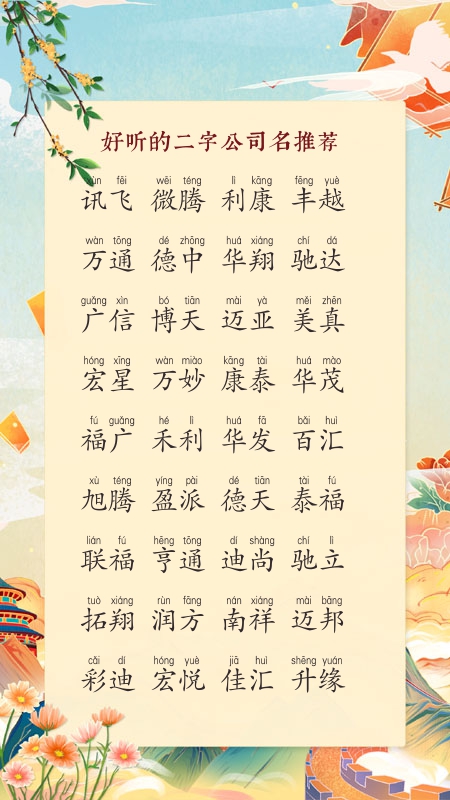 好听的二字公司名推荐
xùn fēi wēi téng lì kāng fēng yuè
讯飞 微腾 利康 丰越
wàn tōng dé zhōng huá xiáng chí dá
万通 德中 华翔 驰达
guǎng xìn bó tiān mài yà měi zhēn
广信 博天 迈亚 美真
hóng xīng wàn miào kāng tài huá mào
宏星 万妙 康泰 华茂
fú guǎng hé lì huá fā bǎi huì
福广 禾利 华发 百汇
xù téng yíng pài dé tiān tài fú
旭腾 盈派 德天 泰福
lián fú hēng tōng dí shàng chí lì
联福 亨通 迪尚 驰立
tuò xiáng rùn fāng nán xiáng mài bāng
拓翔 润方 南祥 迈邦
cǎi dí hóng yuè jiā huì shēng yuán
彩迪 宏悦 佳汇 升缘